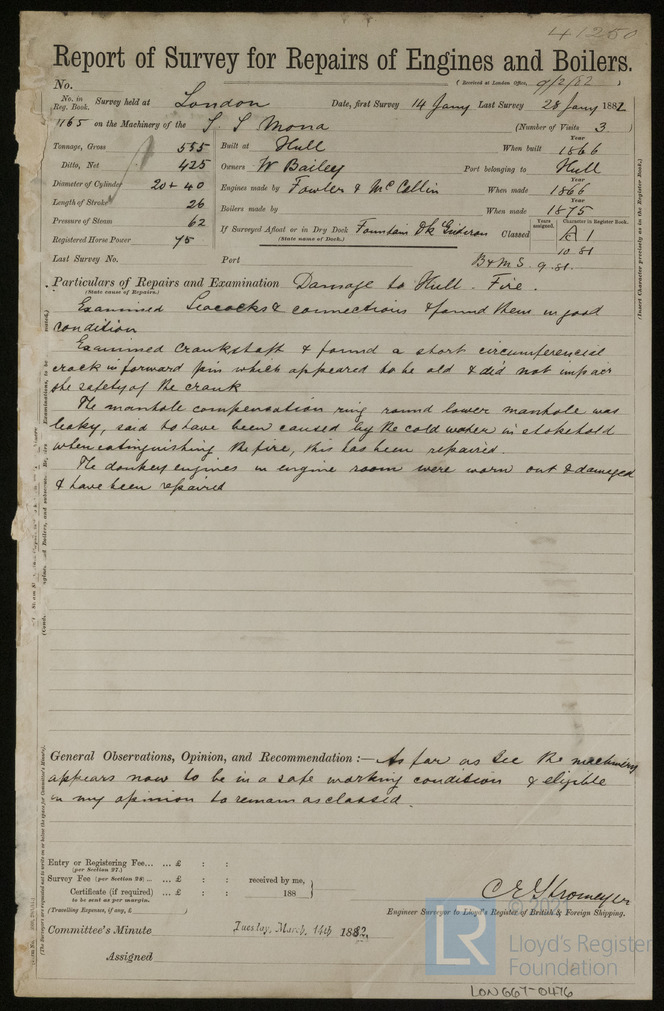 41250
Report of Survey for Repairs of Engines and Boilers.
No. (Received at London Office, 9/2/82)
No. in Reg. Book. Survey held at London Date, first Survey 14 Jany Last Survey 28 Jany 1882
1165 on the Machinery of the S S Mona (Number of Visits 3.)
Tonnage, Gross 555 Built at Hull When built Year 1866
Ditto, Net 425 Owners W Bailey Port belonging to Hull
Diameter of Cylinder 20 + 40 Engines made by Fowler & McCollin When made Year 1866
Length of Stroke 26 Boilers made by When made Year 1875
Pressure of Steam 62 If Surveyed Afloat or in Dry Dock Fountain Dk Classed Years assigned. Character in Register Book. A 1
(State name of Dock.)
Registered Horse Power 75 10.81
Last Survey No. Port B&M S. 9.81.
Particulars of Repairs and Examination Damage to Hull. Fire.
(State cause of Repairs.)
Examined Seacocks & connections & found them in good
condition
Examined Crankshaft & found a short circumferencial
crack in forward pin which appeared to be old & did not impair
the safety of the crank
The manhole compensation ring round lower manhole was
leaky, said to have been caused by the cold water in stokehold
when extinguishing the fire, this has been repaired.
The donkey engines in engine room were worn out & damaged
& have been repaired
General Observations, Opinion, and Recommendation :— As far as see the machinery
appears now to be in a safe working condition & eligible
in my opinion to remain as classed.
Entry or Registering Fee... ... £ : :
(per Section 27.)
Survey Fee (per Section 28) ... ... £ : : received by me,
Certificate (if required) ... £ : : 188
to be sent as per margin.
(Travelling Expenses, if any, £ )
Engineer Surveyor to Lloyd's Register of British & Foreign Shipping.
Committee's Minute Tuesday, March, 14th 1882
Assigned
(Insert Character precisely as in the Register Book.)
(The Surveyors are requested not to write on or below the space for Committee's Minute.)
LR
Lloyd's Register
Foundation
LON667-0476